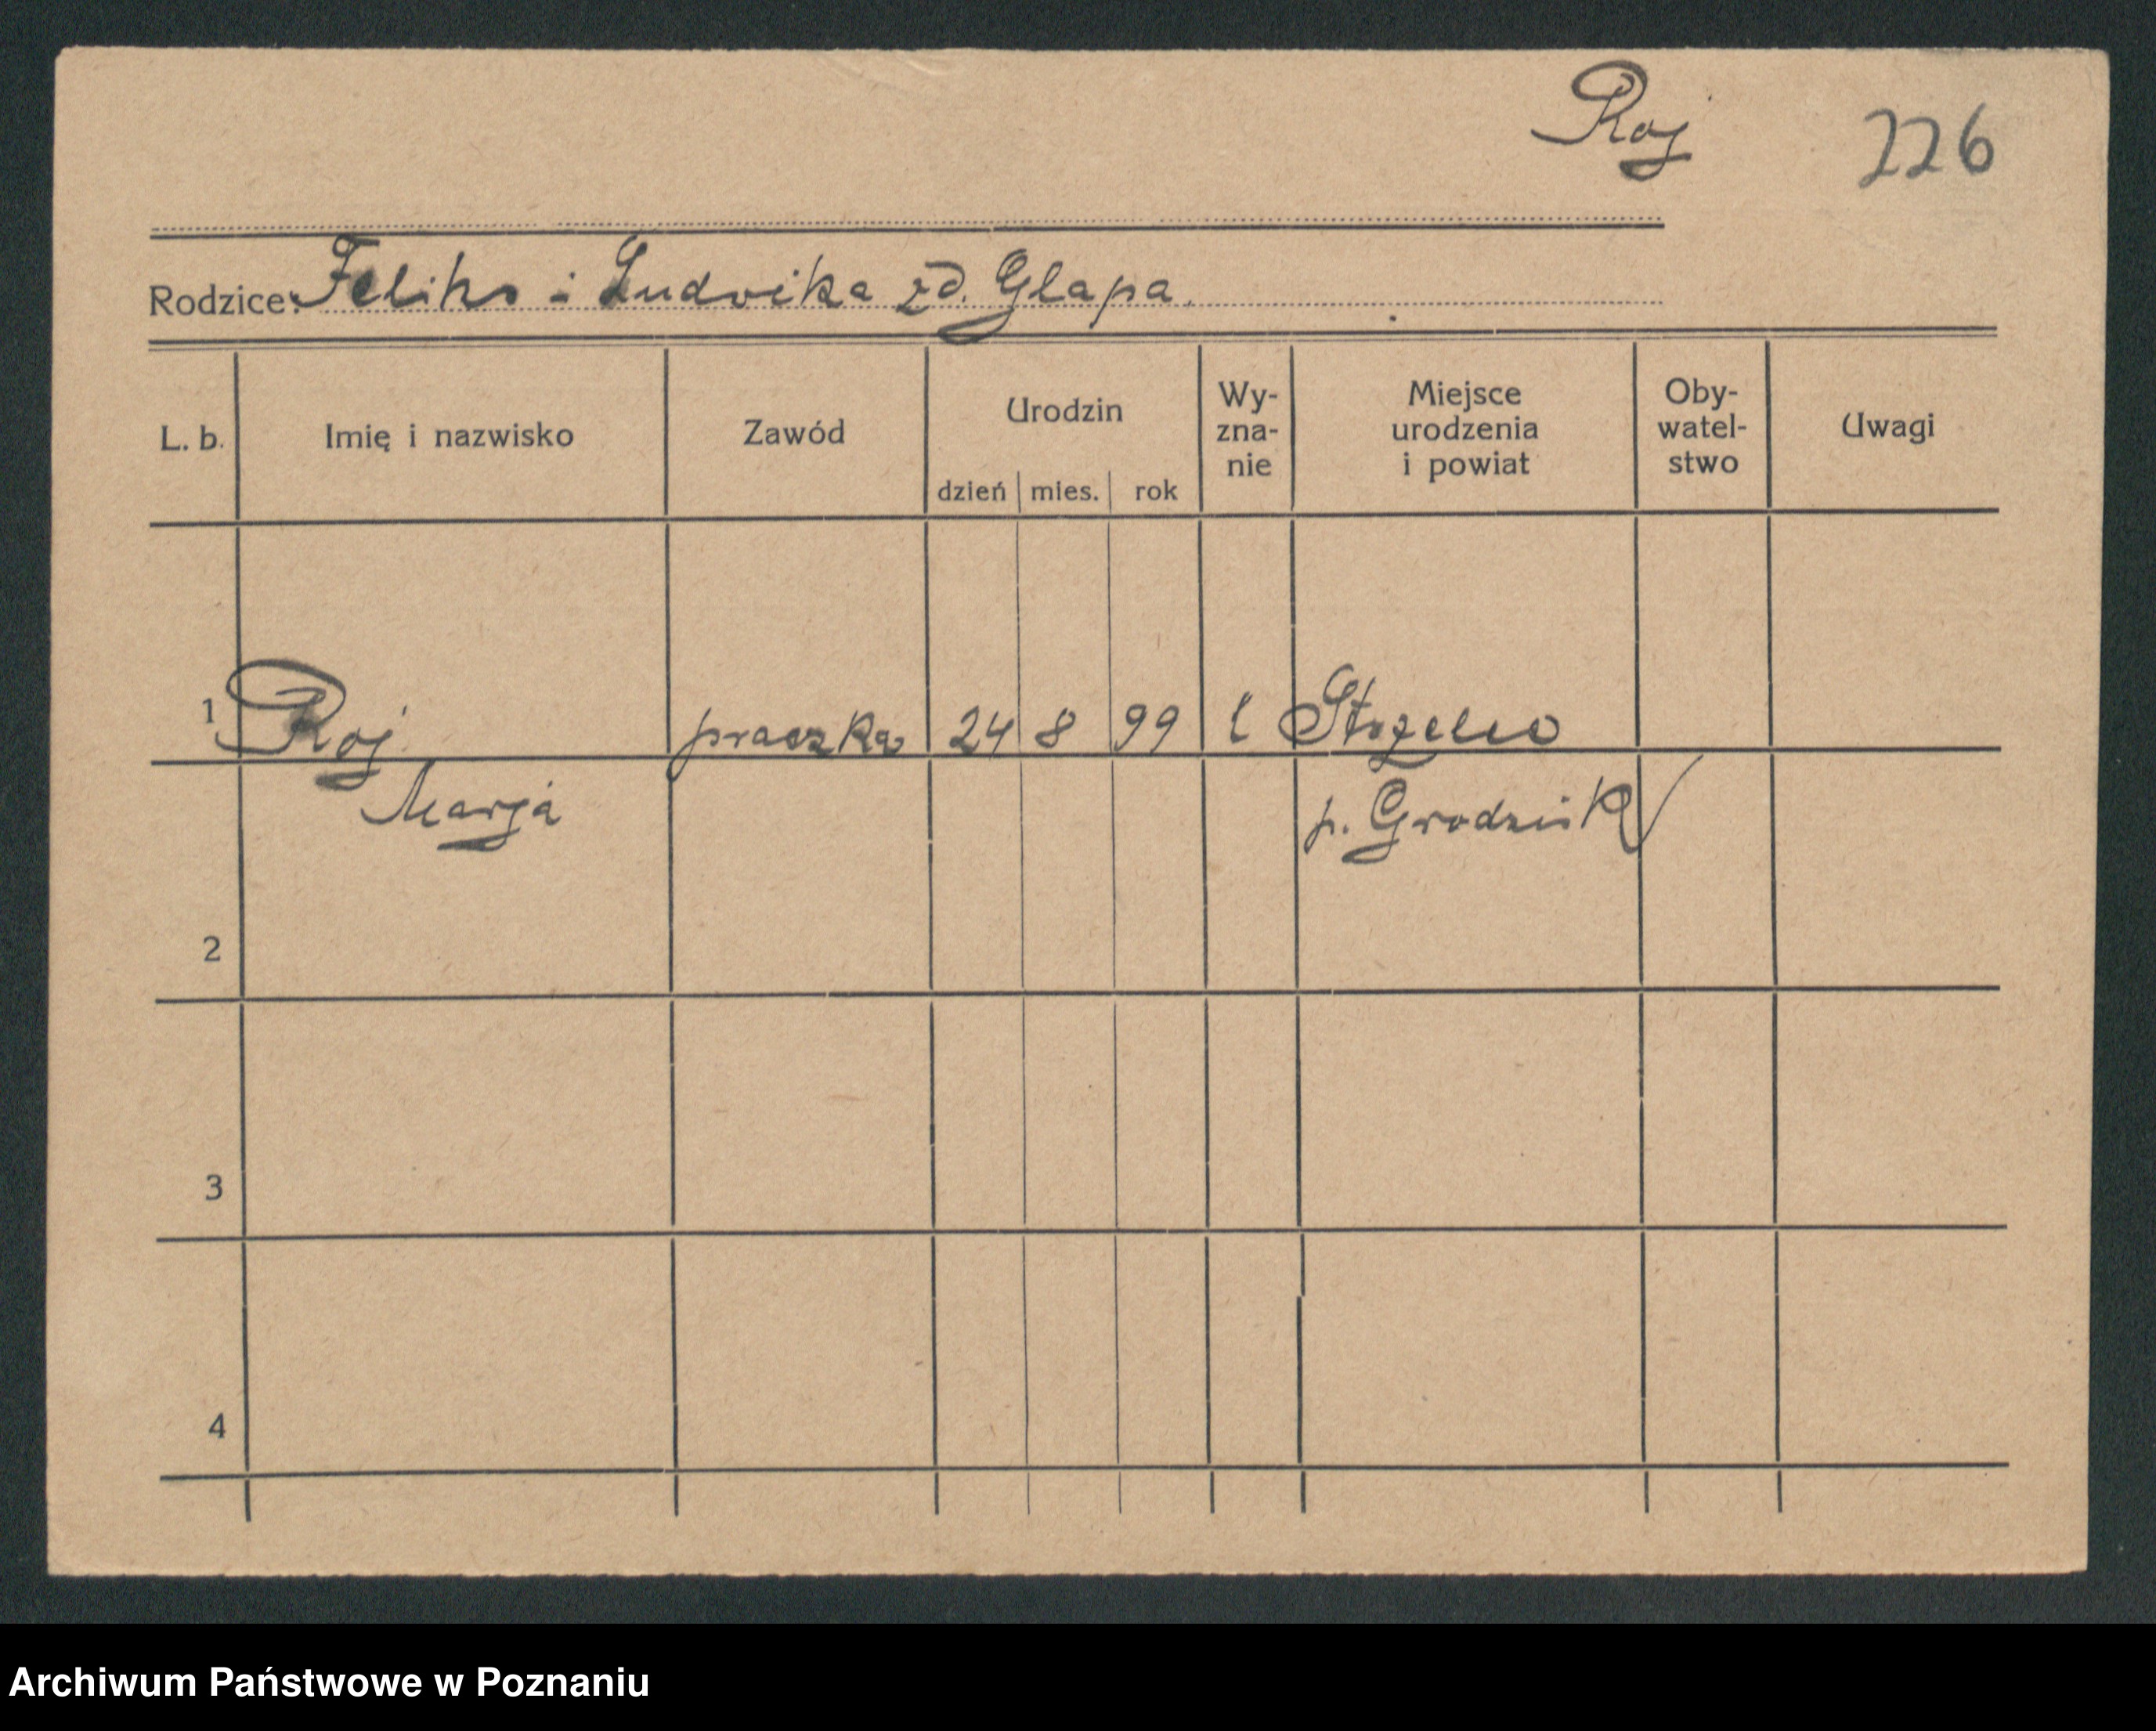 Roj 226
Rodzice: Feliks i Ludwika zd. Glapa.
L. b. Imię i nazwisko Zawód Urodzin dzień mies. rok Wy-zna-nie Miejsce urodzenia i powiat Oby-watel-stwo Uwagi
1 Roj praczka 24 8 99 Strzelce
Marja p. Grodzisk
2
3
4
Archiwum Państwowe w Poznaniu